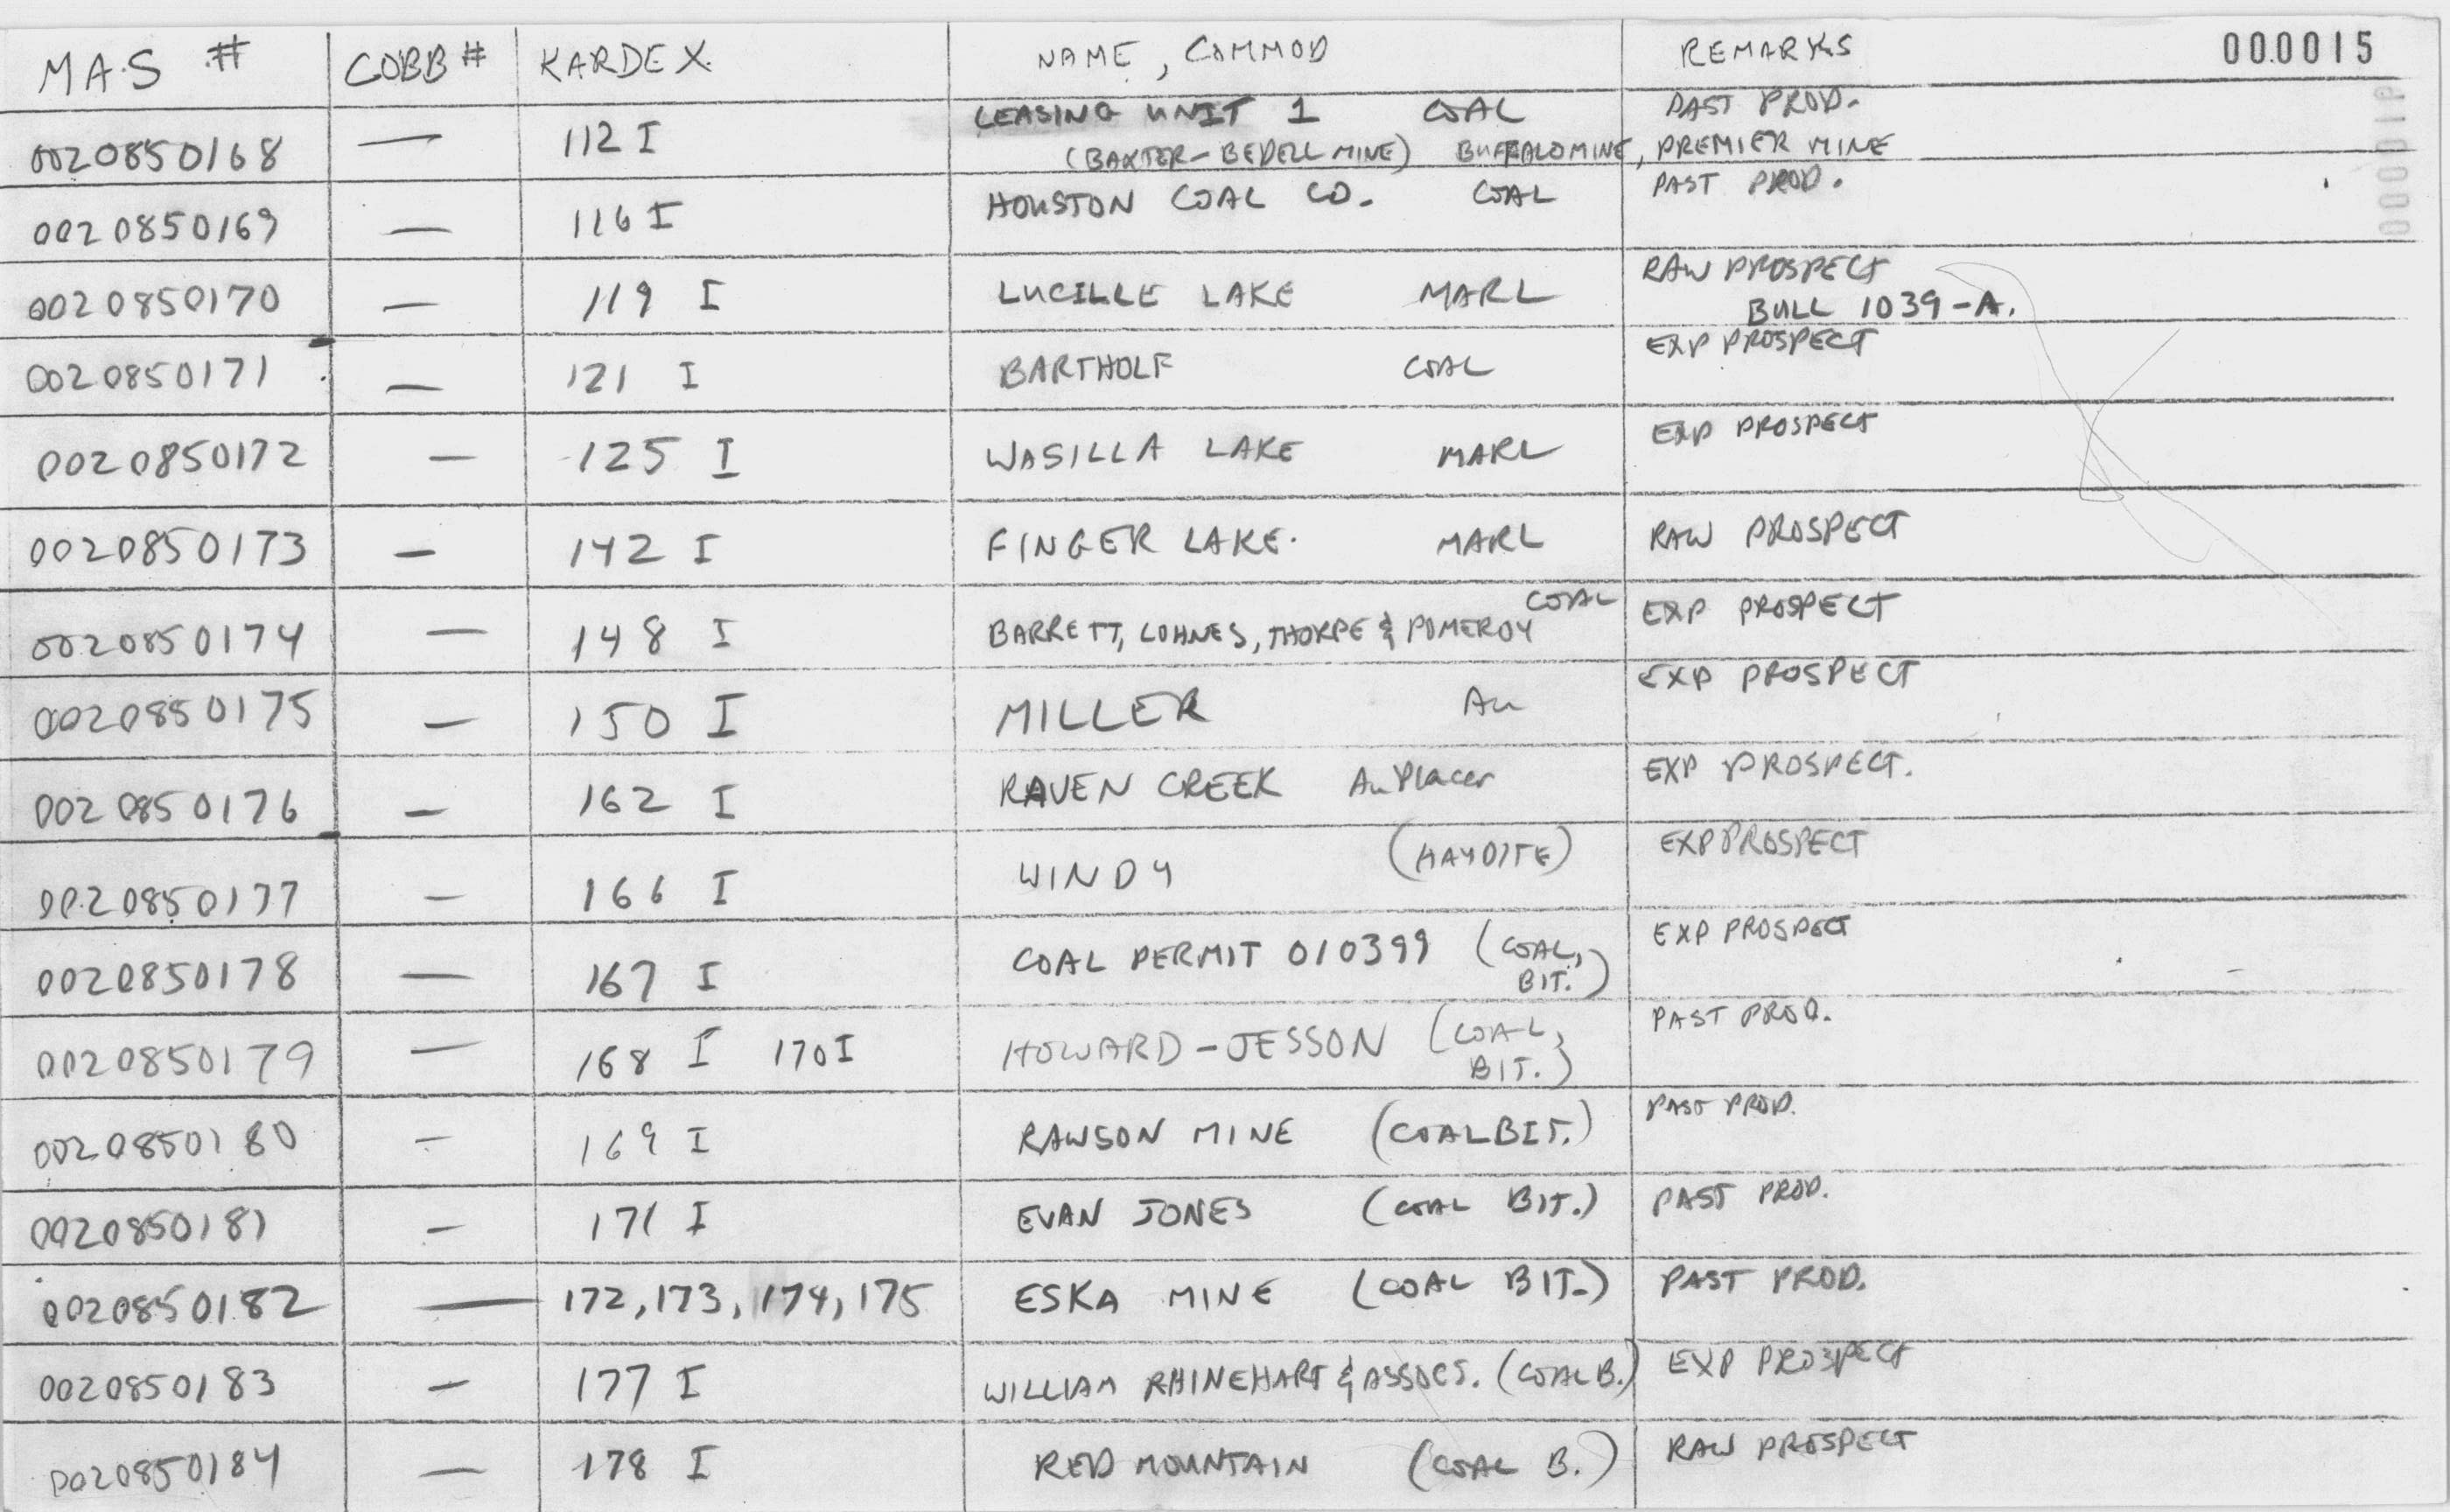 MAS # COBB # KARDEX NAME, COMMOD REMARKS 000015
0020850168 — 112 I LEASING UNIT 1 COAL PAST PROD.
(BAXTER-BEDELL MINE) BUFFALO MINE, PREMIER MINE
0020850169 — 116 I HOUSTON COAL CO. COAL PAST PROD.
0020850170 — 119 I LUCILLE LAKE MARL RAW PROSPECT
BULL 1039-A.
0020850171 — 121 I BARTHOLF COAL EXP PROSPECT
0020850172 — 125 I WASILLA LAKE MARL EXP PROSPECT
0020850173 — 142 I FINGER LAKE. MARL RAW PROSPECT
0020850174 — 148 I BARRETT, LOHNES, THORPE & POMEROY COAL EXP PROSPECT
0020850175 — 150 I MILLER Au EXP PROSPECT
0020850176 — 162 I RAVEN CREEK Au Placer EXP PROSPECT.
0020850177 — 166 I WINDY (HAYDITE) EXP PROSPECT
0020850178 — 167 I COAL PERMIT 010399 (COAL, BIT.) EXP PROSPECT
0020850179 — 168 I 170 I HOWARD-JESSON (COAL, BIT.) PAST PROD.
0020850180 — 169 I RAWSON MINE (COAL BIT.) PAST PROD.
0020850181 — 171 I EVAN JONES (COAL BIT.) PAST PROD.
0020850182 — 172, 173, 174, 175 ESKA MINE (COAL BIT.) PAST PROD.
0020850183 — 177 I WILLIAM RHINEHART & ASSOCS. (COAL B.) EXP PROSPECT
0020850184 — 178 I RED MOUNTAIN (COAL B.) RAW PROSPECT